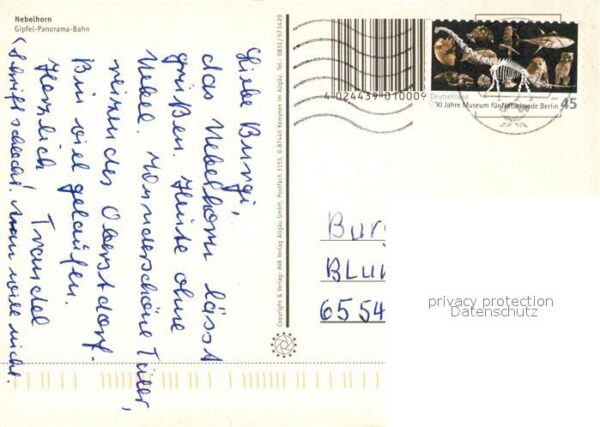 Nebelhorn
Gipfel-Panorama-Bahn
Liebe Burgi,
das Nebelhorn lässt
grüßen. Heute ohne
Nebel. Wunderschöne
reizendes Oberstdorf.
Bin viel gelaufen.
Herzlich Traudel
(Schrift schlecht! Mann will nicht.
Copyright & Verlag: AVA Verlag Allgäu GmbH, Postfach 3153, D-87440 Kempten im Allgäu, Tel. 0831/571420
4-024439-010009
Deutschland
200 Jahre Museum für Naturkunde Berlin 45
Burg
Blum
6554
privacy protection
Datenschutz